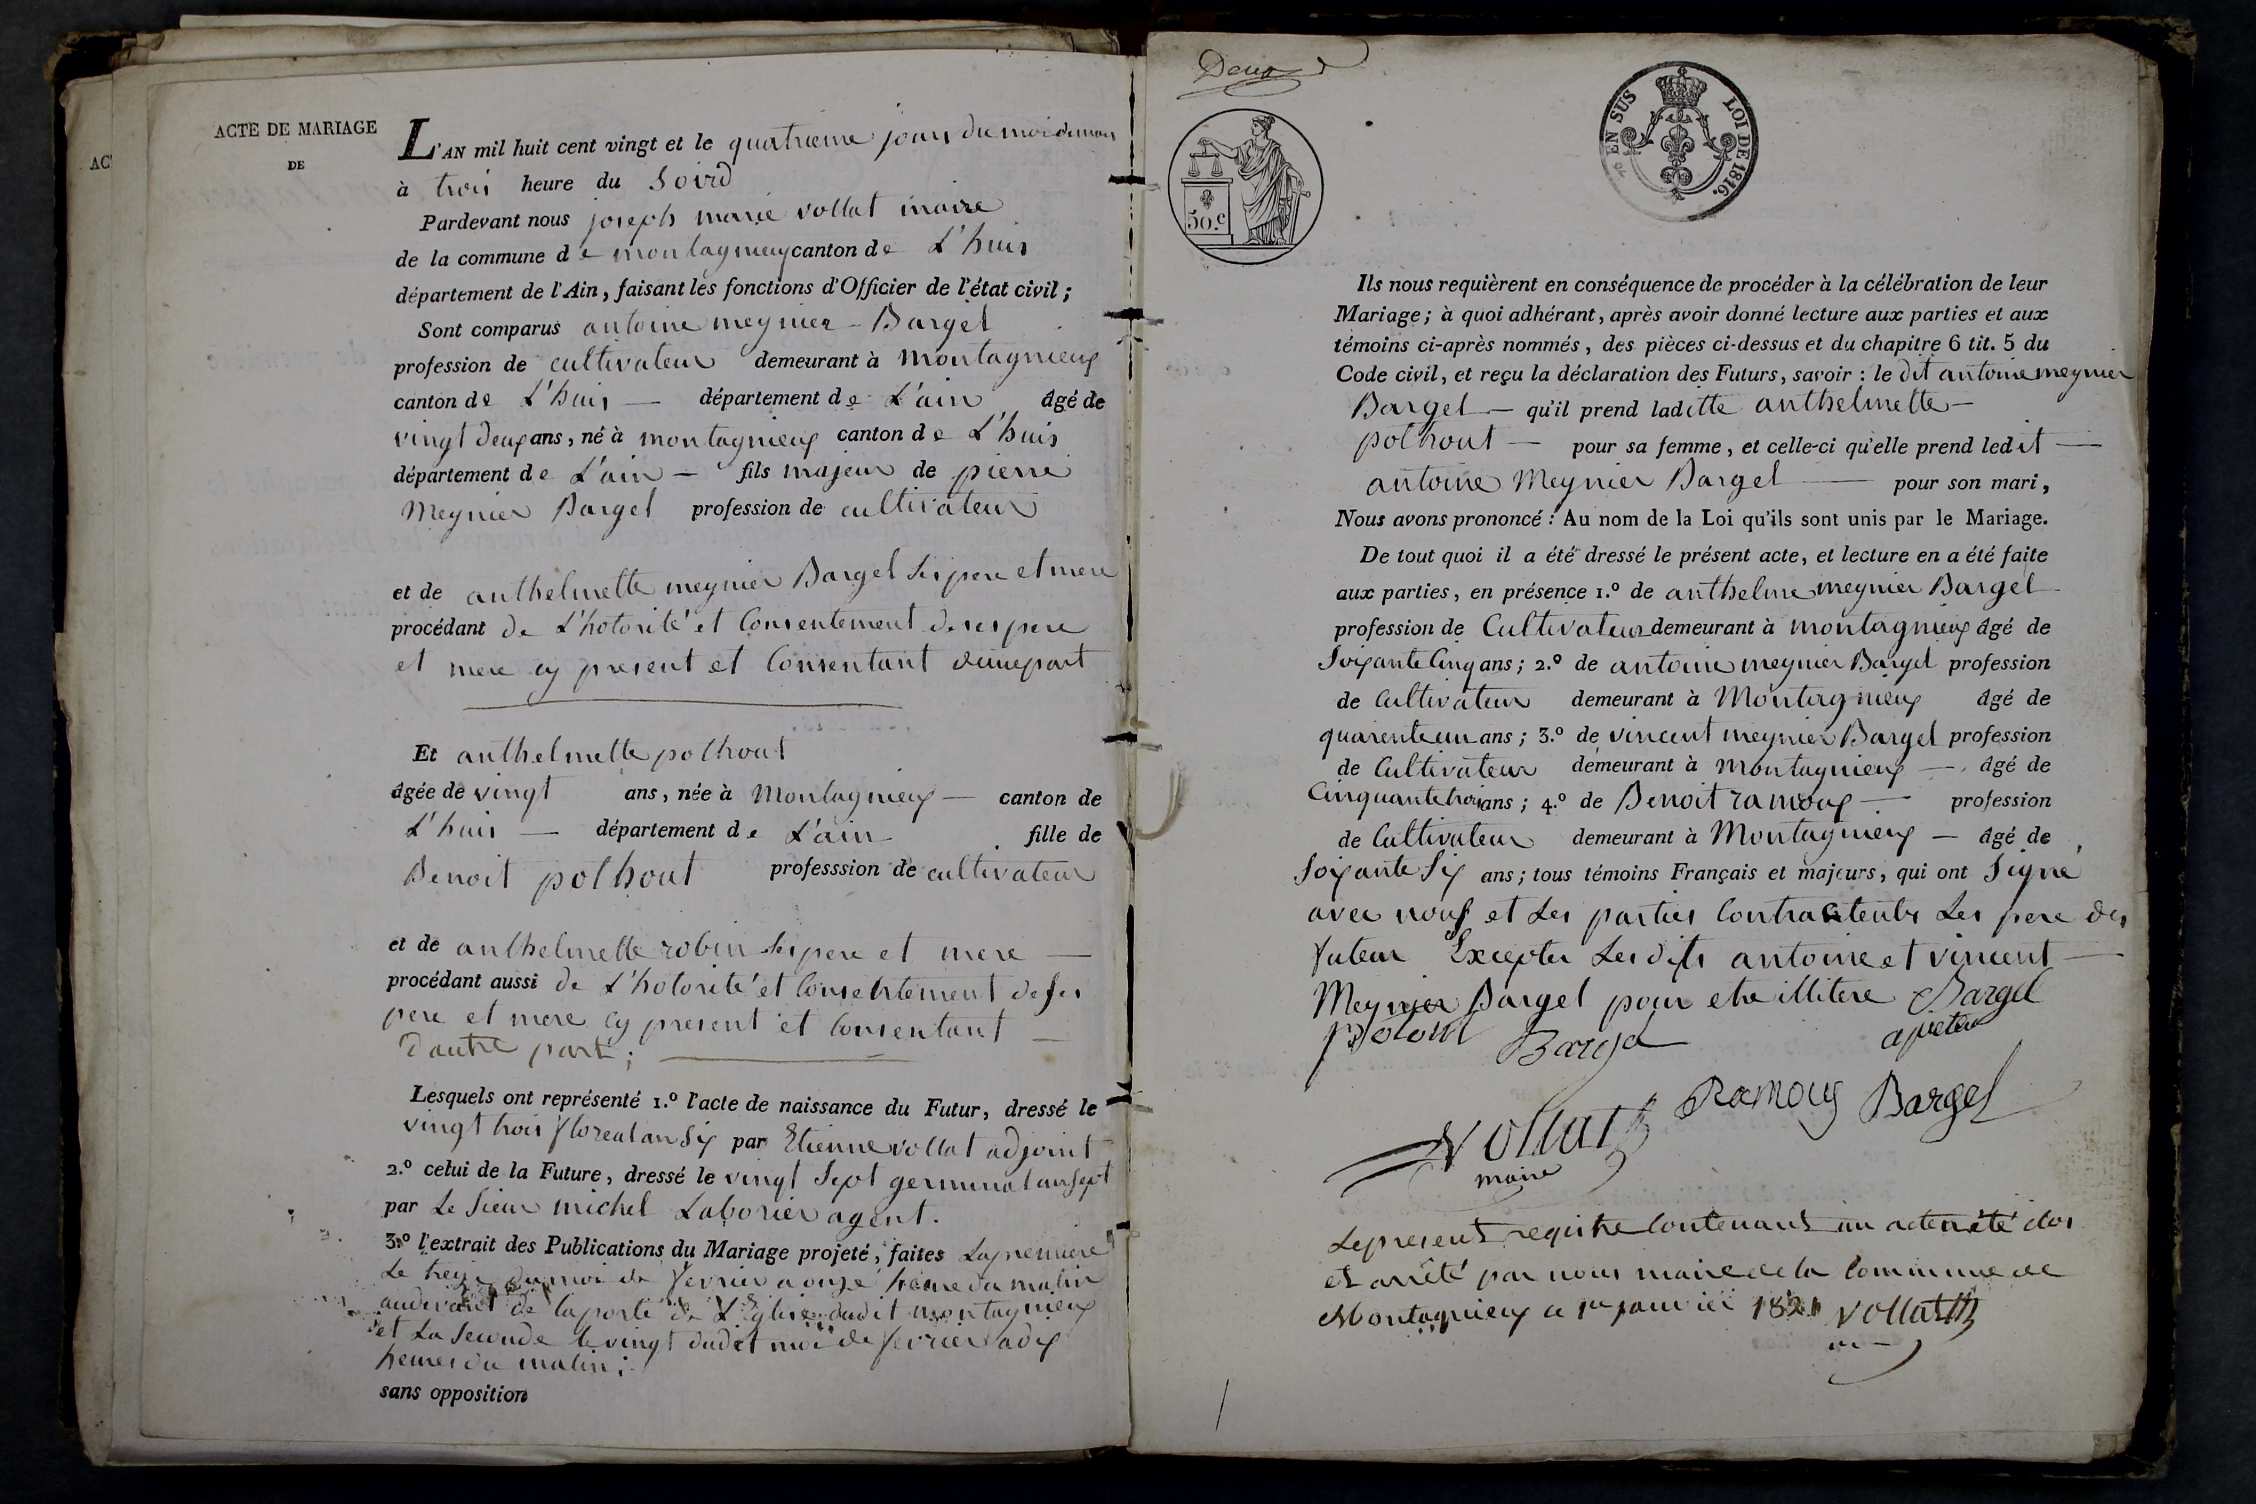 ACTE DE MARIAGE
DE
AC
L'AN mil huit cent vingt et le quatrieme jour du moi de mars
à trois heure du Soird
Pardevant nous joseph marie vollat maire
de la commune de montagnieux canton de L'huis
département de l'Ain, faisant les fonctions d'Officier de l'état civil;
Sont comparus antoine meynier Bargel
profession de cultivateur demeurant à montagnieux
canton de L'huis — département de L'ain âgé de
vingt deux ans, né à montagnieux canton de L'huis
département de L'ain — fils majeur de pierre
Meynier Bargel profession de cultivateur
et de anthelmette meynier Bargel Ses pere et mere
procédant de L'hotorité et Consentement de ses pere
et mere cy present et Consentant d'une part
Et anthelmette polhout
âgée de vingt ans, née à Montagnieux — canton de
L'huis — département de L'ain fille de
Benoit polhout professsion de cultivateur
et de anthelmette robin Ses pere et mere —
procédant aussi de L'hotorité et Consentement de ses
pere et mere cy present et Consentant —
d'autre part;
Lesquels ont représenté 1.º l'acte de naissance du Futur, dressé le
vingt trois floreal an Six par Etienne vollat adjoint
2.º celui de la Future, dressé le vingt Sept germinal an Sept
par Le Sieur michel Laborier agent.
3.º l'extrait des Publications du Mariage projeté, faites La premiere
Le treize du moi de fevrier a onze heure du matin
audevant de la porte de L'Eglise dudit montagnieux
et La Seconde le vingt dudit moi de fevrier a dix
heures du matin;
sans opposition
Deux
50.c
EN SUS
LOI DE 1816.
Ils nous requièrent en conséquence de procéder à la célébration de leur
Mariage; à quoi adhérant, après avoir donné lecture aux parties et aux
témoins ci-après nommés, des pièces ci-dessus et du chapitre 6 tit. 5 du
Code civil, et reçu la déclaration des Futurs, savoir: le dit antoine meynier
Bargel — qu'il prend laditte anthelmette —
polhout — pour sa femme, et celle-ci qu'elle prend ledit —
antoine Meynier Bargel — pour son mari,
Nous avons prononcé: Au nom de la Loi qu'ils sont unis par le Mariage.
De tout quoi il a été dressé le présent acte, et lecture en a été faite
aux parties, en présence 1.º de anthelme meynier Bargel
profession de Cultivateur demeurant à montagnieux âgé de
Soixante Cinq ans; 2.º de antoine meynier Bargel profession
de Cultivateur demeurant à Montagnieux âgé de
quarente un ans; 3.º de vincent meynier Bargel profession
de Cultivateur demeurant à montagnieux — âgé de
Cinquante trois ans; 4.º de Benoit ramoux — profession
de Cultivateur demeurant à Montagnieux — âgé de
Soixante Six ans; tous témoins Français et majeurs, qui ont Signé
avec nous et Les parties Contractents Les pere des
futeur Excepter Les dits antoine et vincent —
Meynier Bargel pour etre illitere Bargel
Bargel
Ramoux Bargel
Vollat
maire
Le present registre Contenant un acte a été clos
et arrêté par nous maire de la Commune de
Montagnieux ce 1er janvier 1821 Vollat